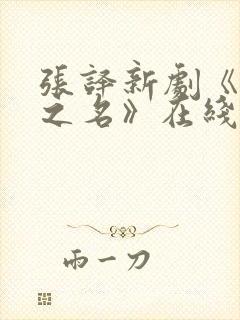 張譯新劇《
之名》在綫
雨一刀